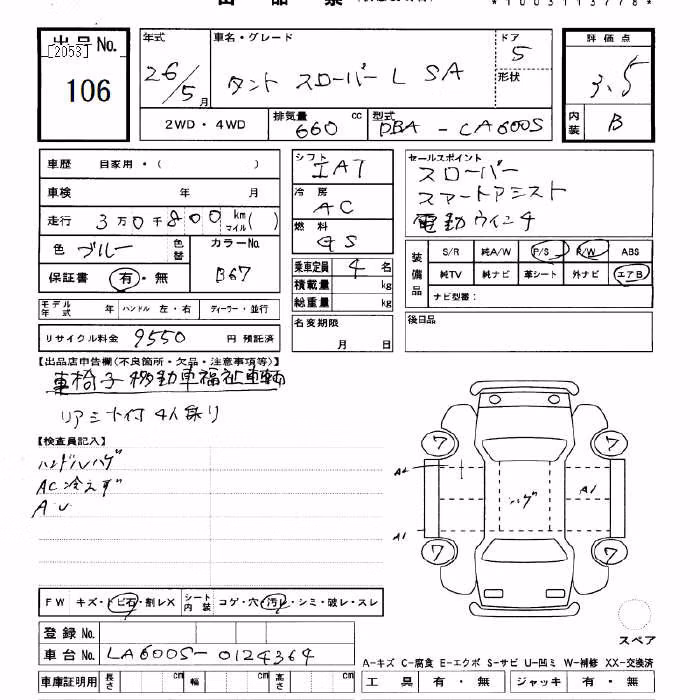 出品票
*1003113778*
出品No.
[2053]
106
年式
26/5月
車名・グレード
タント スローパーL SA
ドア
5
形状
評価点
3.5
2WD・4WD
排気量
660 cc
型式
DBA-CA600S
内装
B
車歴 自家用・( )
車検 年 月
走行 3万0千800 km マイル( )
色 ブルー
色替
カラーNo.
B67
保証書 有・無
モデル年式 年 ハンドル 左・右 ディーラー・並行
リサイクル料金 9550 円 預託済
シフト
IAT
冷房
AC
燃料
GS
乗車定員 4 名
積載量 kg
総重量 kg
名変期限
月 日
セールスポイント
スローパー
スマートアシスト
電動ウインチ
装備品
S/R 純A/W P/S P/W ABS
純TV 純ナビ 革シート 外ナビ エアB
ナビ型番:
後日品
【出品店申告欄(不良箇所・欠品・注意事項等)】
車椅子移動車福祉車輌
リアシート付 4人乗り
【検査員記入】
ハンドルハゲ
AC冷えず
AU
7
7
7
7
A2
A1
ハゲ
A1
スペア
FW キズ・トビ石・割レX
シート内装 コゲ・穴・汚レ・シミ・破レ・スレ
登録No.
車台No. LA600S-0124364
車庫証明用 長さ cm 幅 cm 高さ cm
A-キズ C-腐食 E-エクボ S-サビ U-凹ミ W-補修 XX-交換済
工具 有・無 ジャッキ 有・無